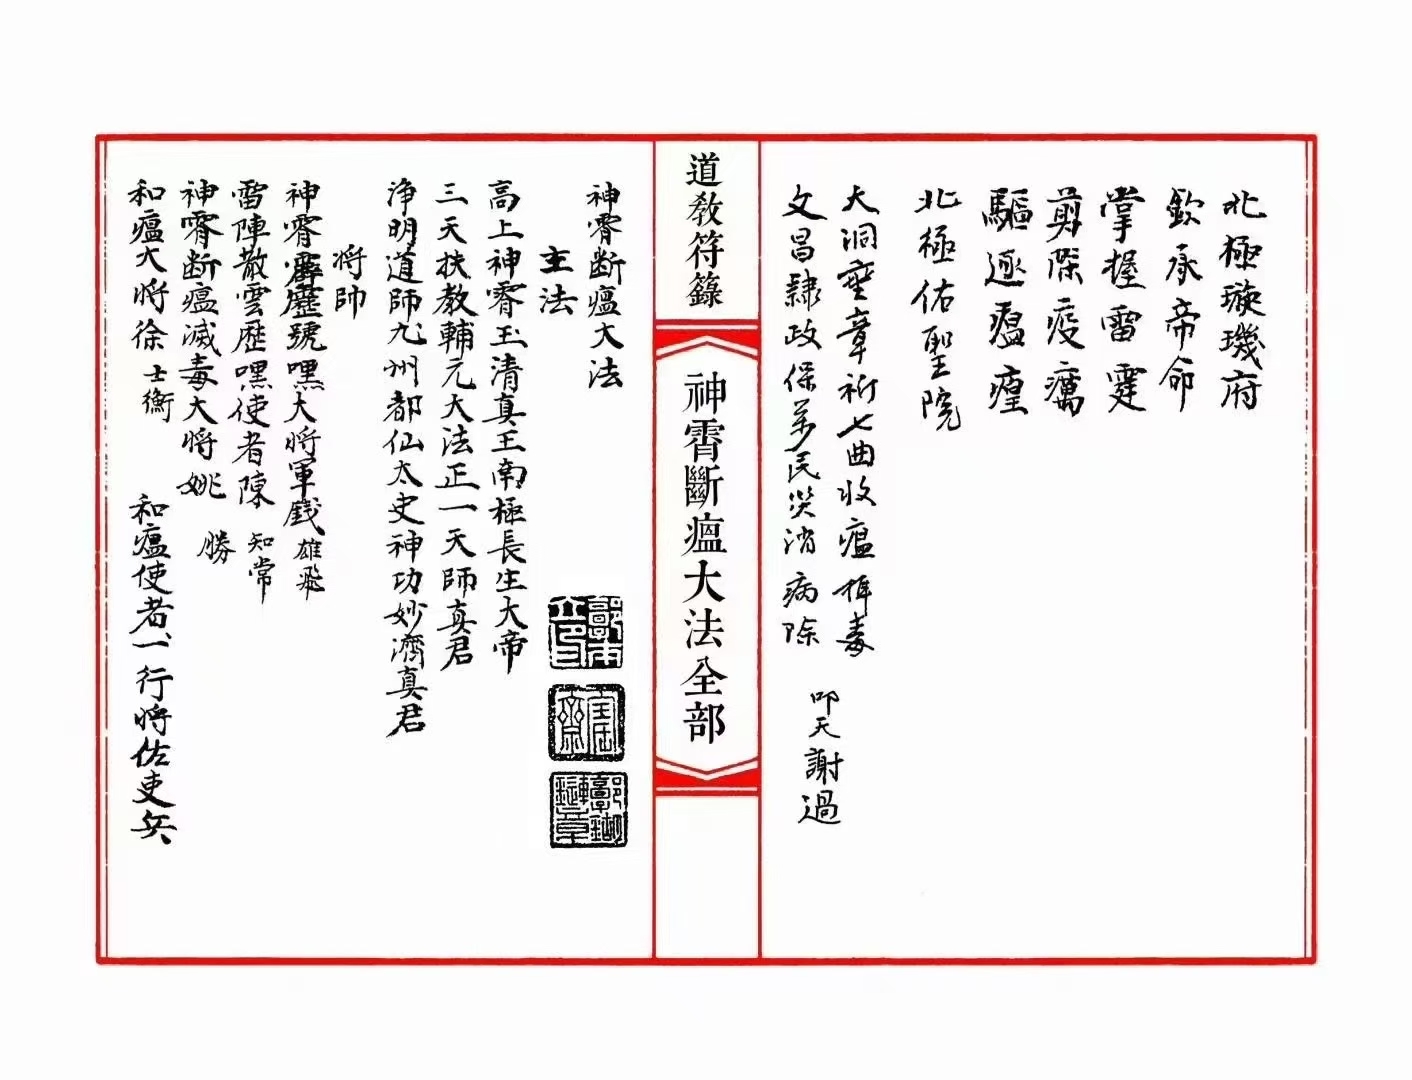 北極璇璣府
欽承帝命
掌握雷霆
剪除疫癘
驅逐瘟㾮
北極佑聖院
大洞寶章祈七曲收瘟攝毒
文昌隸政保萬民災消病除
叩天謝過
道教符籙
神霄斷瘟大法全部
神霄断瘟大法
主法
高上神霄玉清真王南極長生大帝
三天扶教輔元大法正一天師真君
淨明道師九州都仙太史神功妙濟真君
将帥
神霄霹靂號嘿大将軍錢雄飛
雷陣散雲歷嘿使者陳知常
神霄断瘟滅毒大将姚勝
和瘟大将徐士衡
和瘟使者一行将佐吏兵